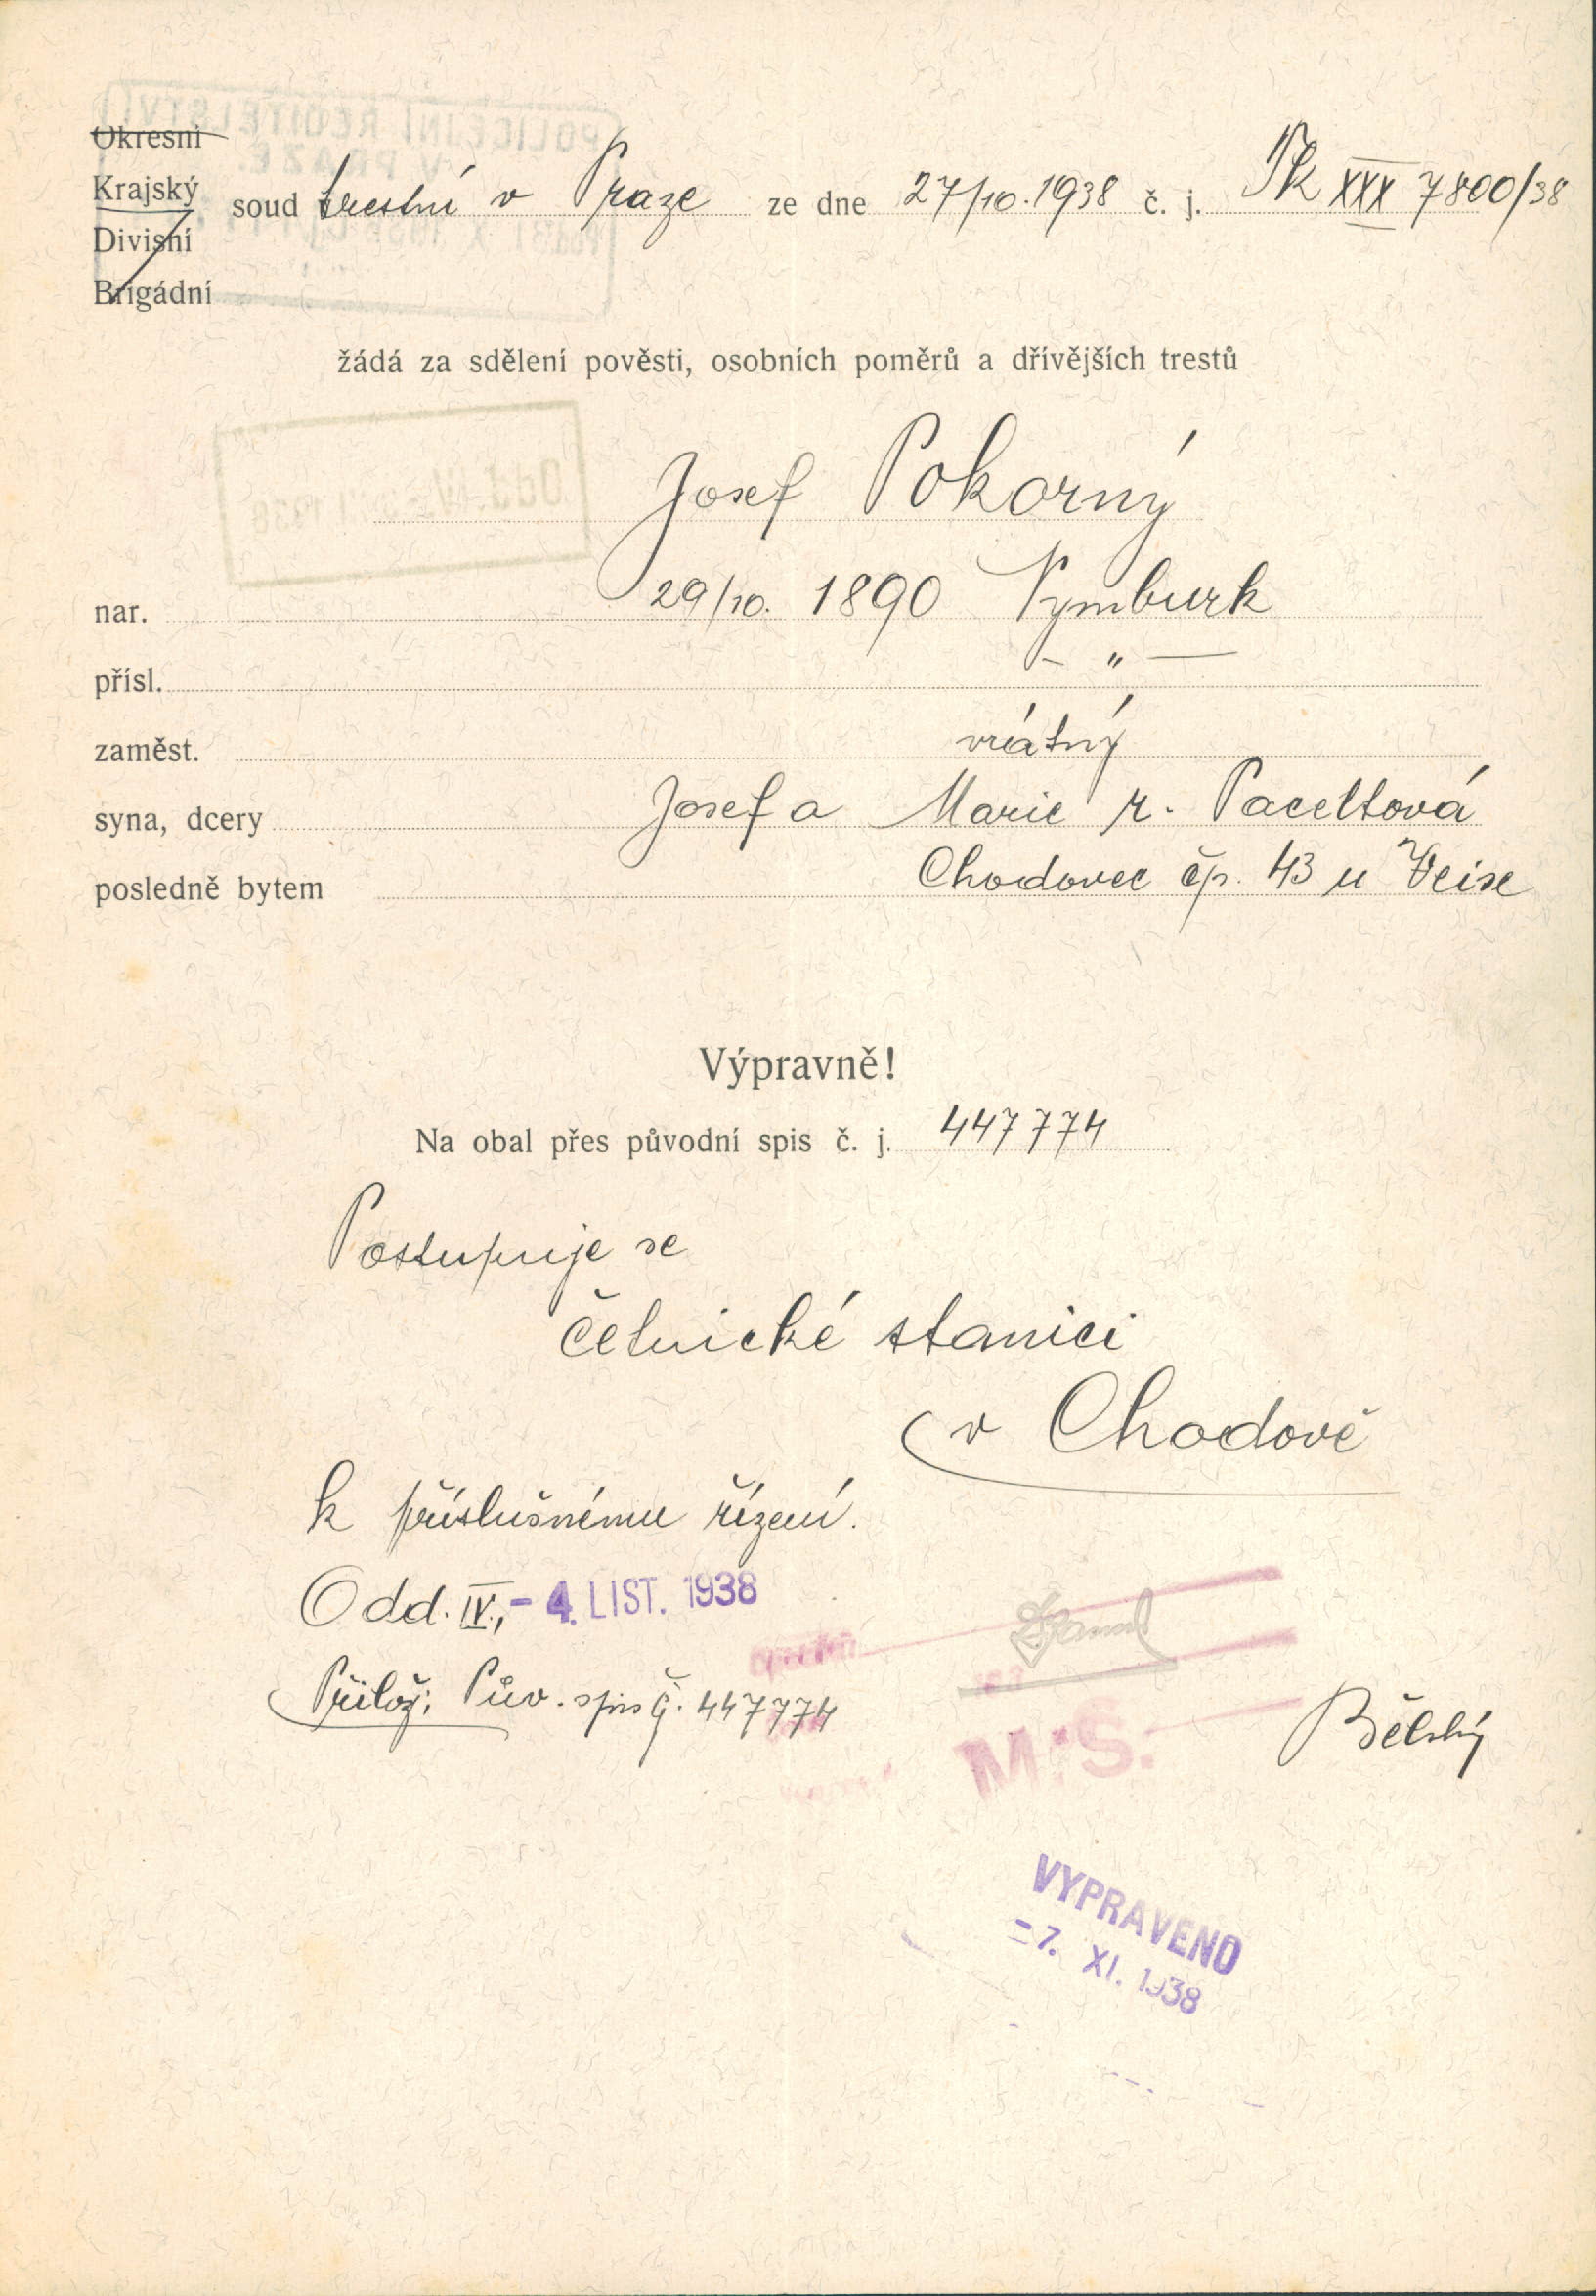 Okresní
Krajský soud trestní v Praze ze dne 27/10.1938 č. j. Tk XXX 7800/38
Divisní
Brigádní
žádá za sdělení pověsti, osobních poměrů a dřívějších trestů
Josef Pokorný
nar. 29/10. 1890 Nymburk
přísl. — " —
zaměst. vrátný
syna, dcery Josef a Marie r. Paceltová
posledně bytem Chodovec čp. 43 u Veise
Výpravně!
Na obal přes původní spis č. j. 447774
Postupuje se
četnické stanici
v Chodově
k příslušnému řízení.
Odd. IV., - 4. LIST. 1938
Přílož: Pův. spis č. 447774
M. S.
Bělský
VYPRAVENO
- 7. XI. 1938